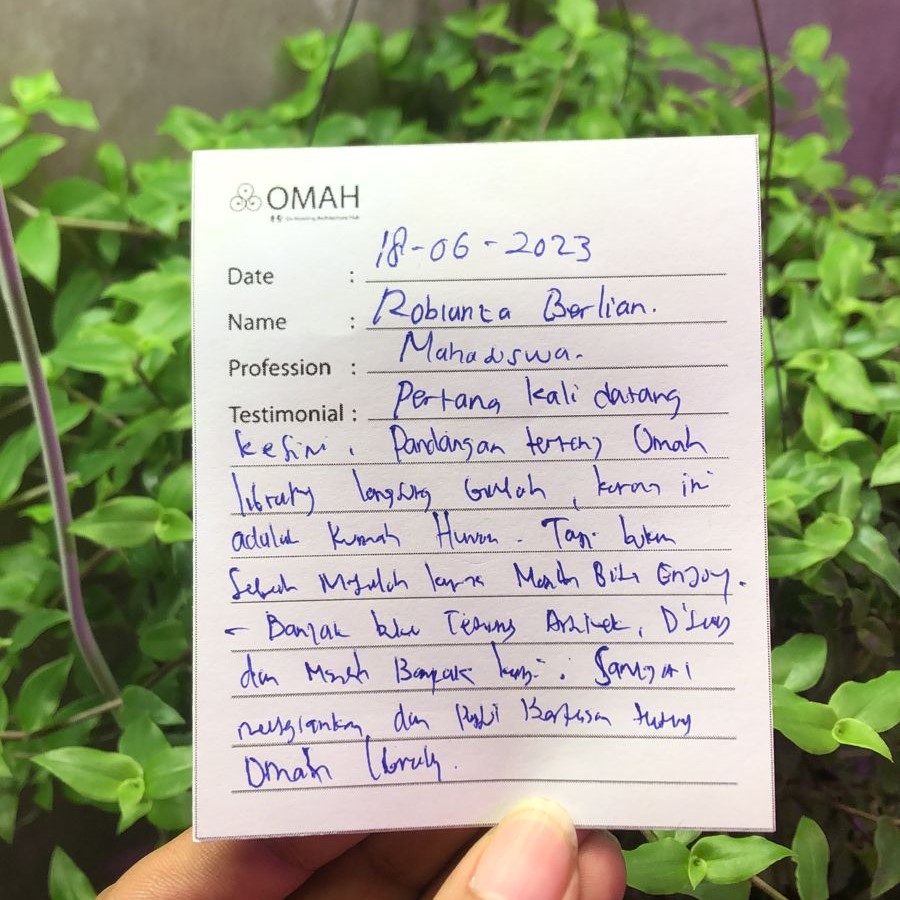 OMAH
Date : 18-06-2023
Name : Robianta Berlian.
Profession : Mahasiswa.
Testimonial : Pertama kali datang
kesini. Pandangan tentang Omah
library langsung berubah, karena ini
adalah Rumah Hunian. Tapi bukan
Sebuah Masalah karena Masih Bisa Enjoy.
- Banyak buku Tentang Arsitek,
dan Masih Banyak lagi.
dan tentang
Omah library.